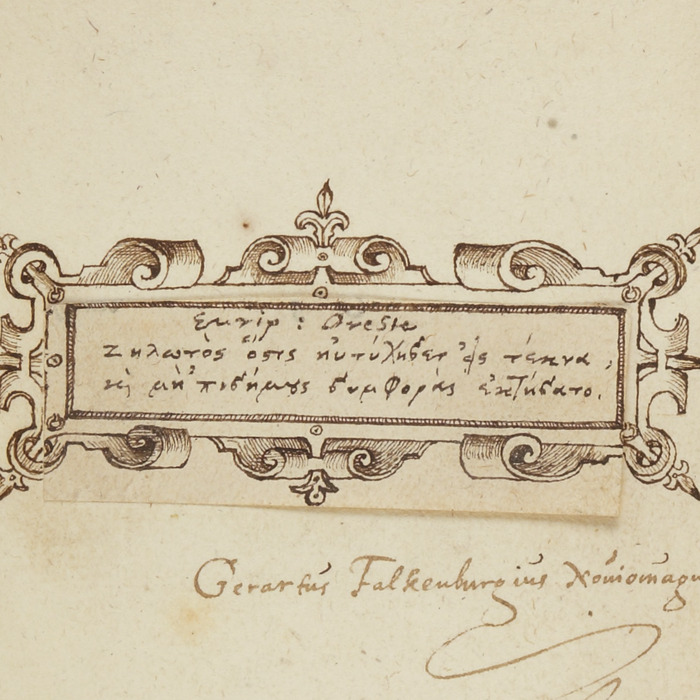 Eurip: Oreste
Ζηλωτὸς ὅστις ηὐτύχησεν ἐς τέκνα,
καὶ μὴ ʼπισήμους συμφορὰς ἐκτήσατο.
Gerartus Falkenburgius Nouiomagu